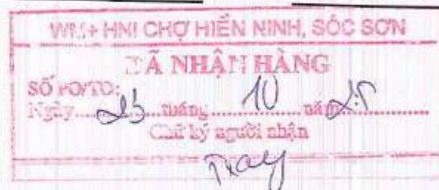 WM+ HNI CHỢ HIỀN NINH, SÓC SƠN
ĐÃ NHẬN HÀNG
SỐ PO/TO:
Ngày.....25 tháng.....10 năm 25
Chữ ký người nhận